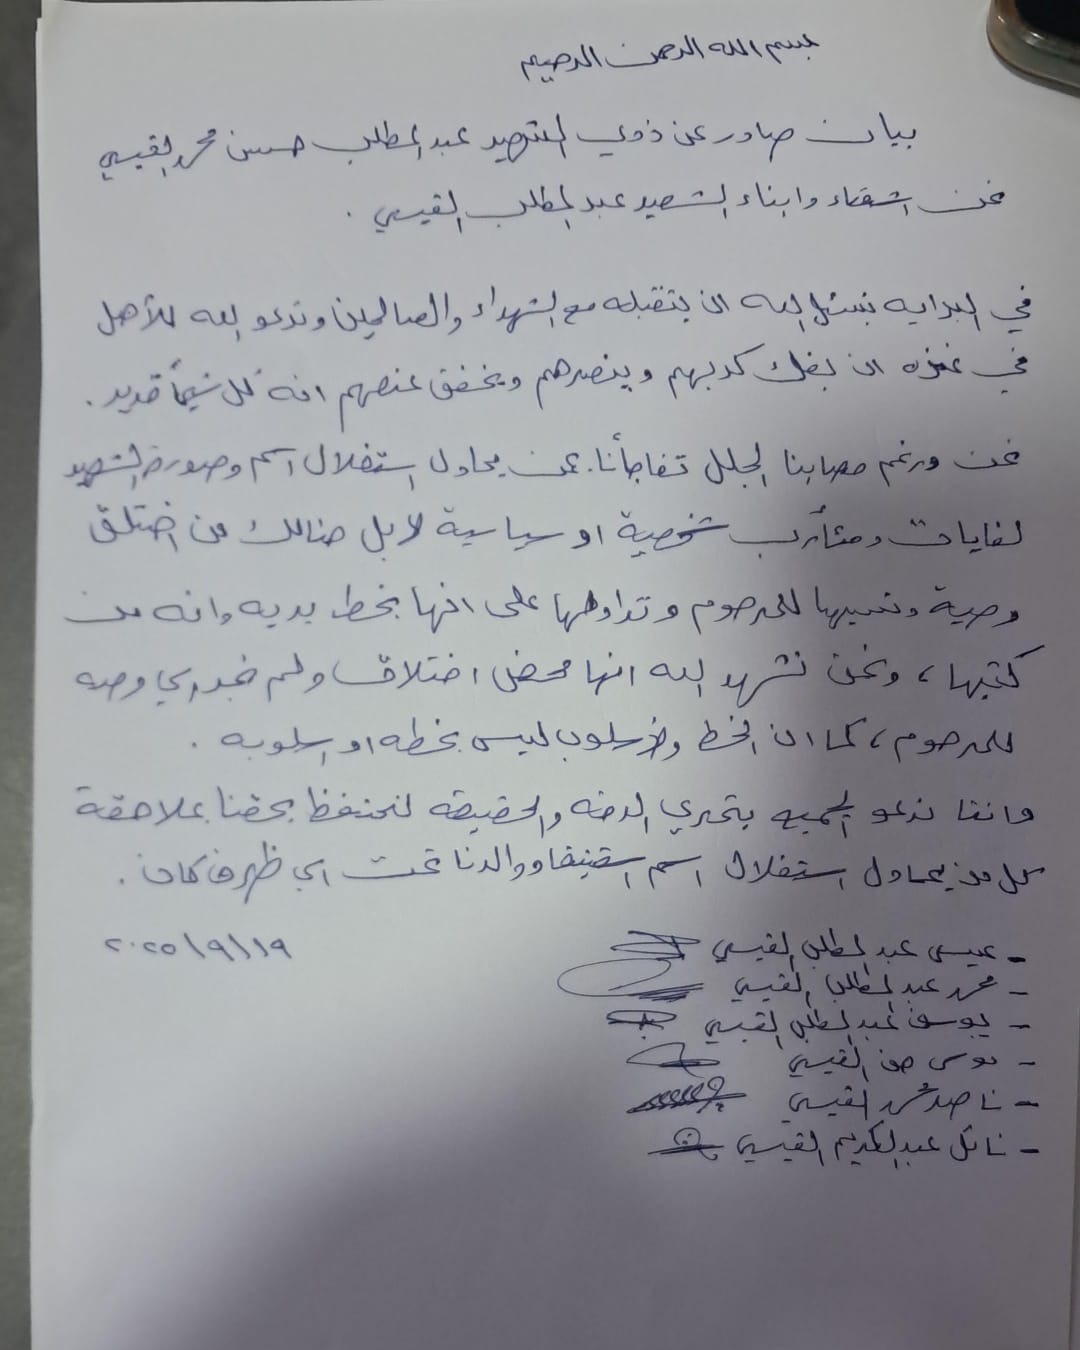 بسم الله الرحمن الرحيم
بيان صادر عن ذوي الشهيد عبد المطلب حسن محمد القيسي
نحن اشقاء وابناء الشهيد عبد المطلب القيسي .
في البدايه نسئل الله ان يتقبله مع الشهداء والصالحين وندعو الله للأهل
في غزه ان يفك كربهم وينصرهم ويخفف عنهم انه على كل شيئاً قدير .
نحن ورغم مصابنا الجلل تفاجأنا بمن يحاول استغلال اسم وصورة الشهيد
لغايات ومئأرب شخصية او سياسية لا بل هنالك من اختلق
وصية ونسبها للمرحوم وتداولها على انها بخط يديه وانه من
كتبها ، ونحن نشهد الله انها محض اختلاق ولم نجد اي وصيه
للمرحوم ، كما ان الخط والأسلوب ليس بخطه او اسلوبه .
واننا ندعو الجميع بتحري الدقه والحقيقه لنحتفظ بحقنا بملاحقة
كل من يحاول استغلال اسم شقيقنا ووالدنا تحت اي ظرف كان .
٢٠٢٥/٩/١٩
- عيسى عبد المطلب القيسي
- محمد عبد المطلب القيسي
- يوسف عبد المطلب القيسي
- موسى القيسي
- ناصر محمد القيسي
- نائل عبد الكريم القيسي